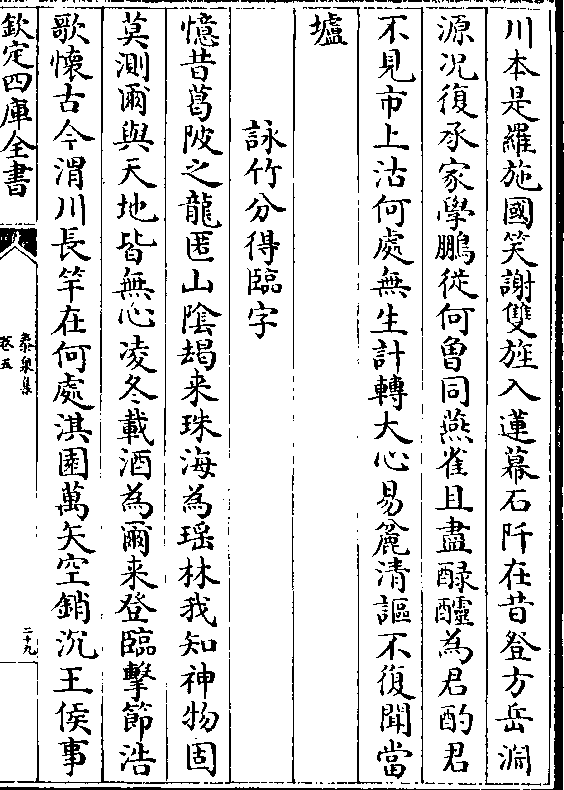 川本是羅施國笑謝雙旌入蓮幕石阡在昔登方岳洞
源况復承家學鵬從何曾同燕雀且盡醁醽為君酌君
不見市上沽何處無生計轉大心易麄清謳不復聞當
壚
詠竹分得臨字
憶昔葛陂之龍匿山隂朅来珠海為瑶林我知神物固
莫測爾與天地皆無心凌冬載酒為爾来登臨擊節浩
歌懷古今渭川長竿在何處淇園萬矢空銷沉王侯事
欽定四庫全書
泰泉集
卷五
二十九